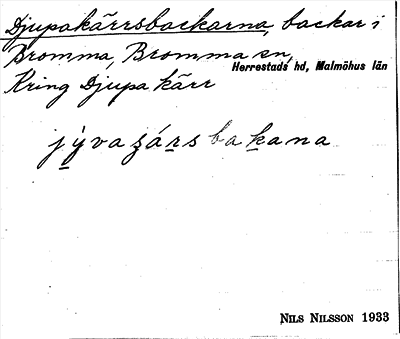 Djupakärrsbackarna, backar i
Bromma, Bromma sn,
Herrestads hd, Malmöhus län
Kring Djupa kärr
NILS NILSSON 1933